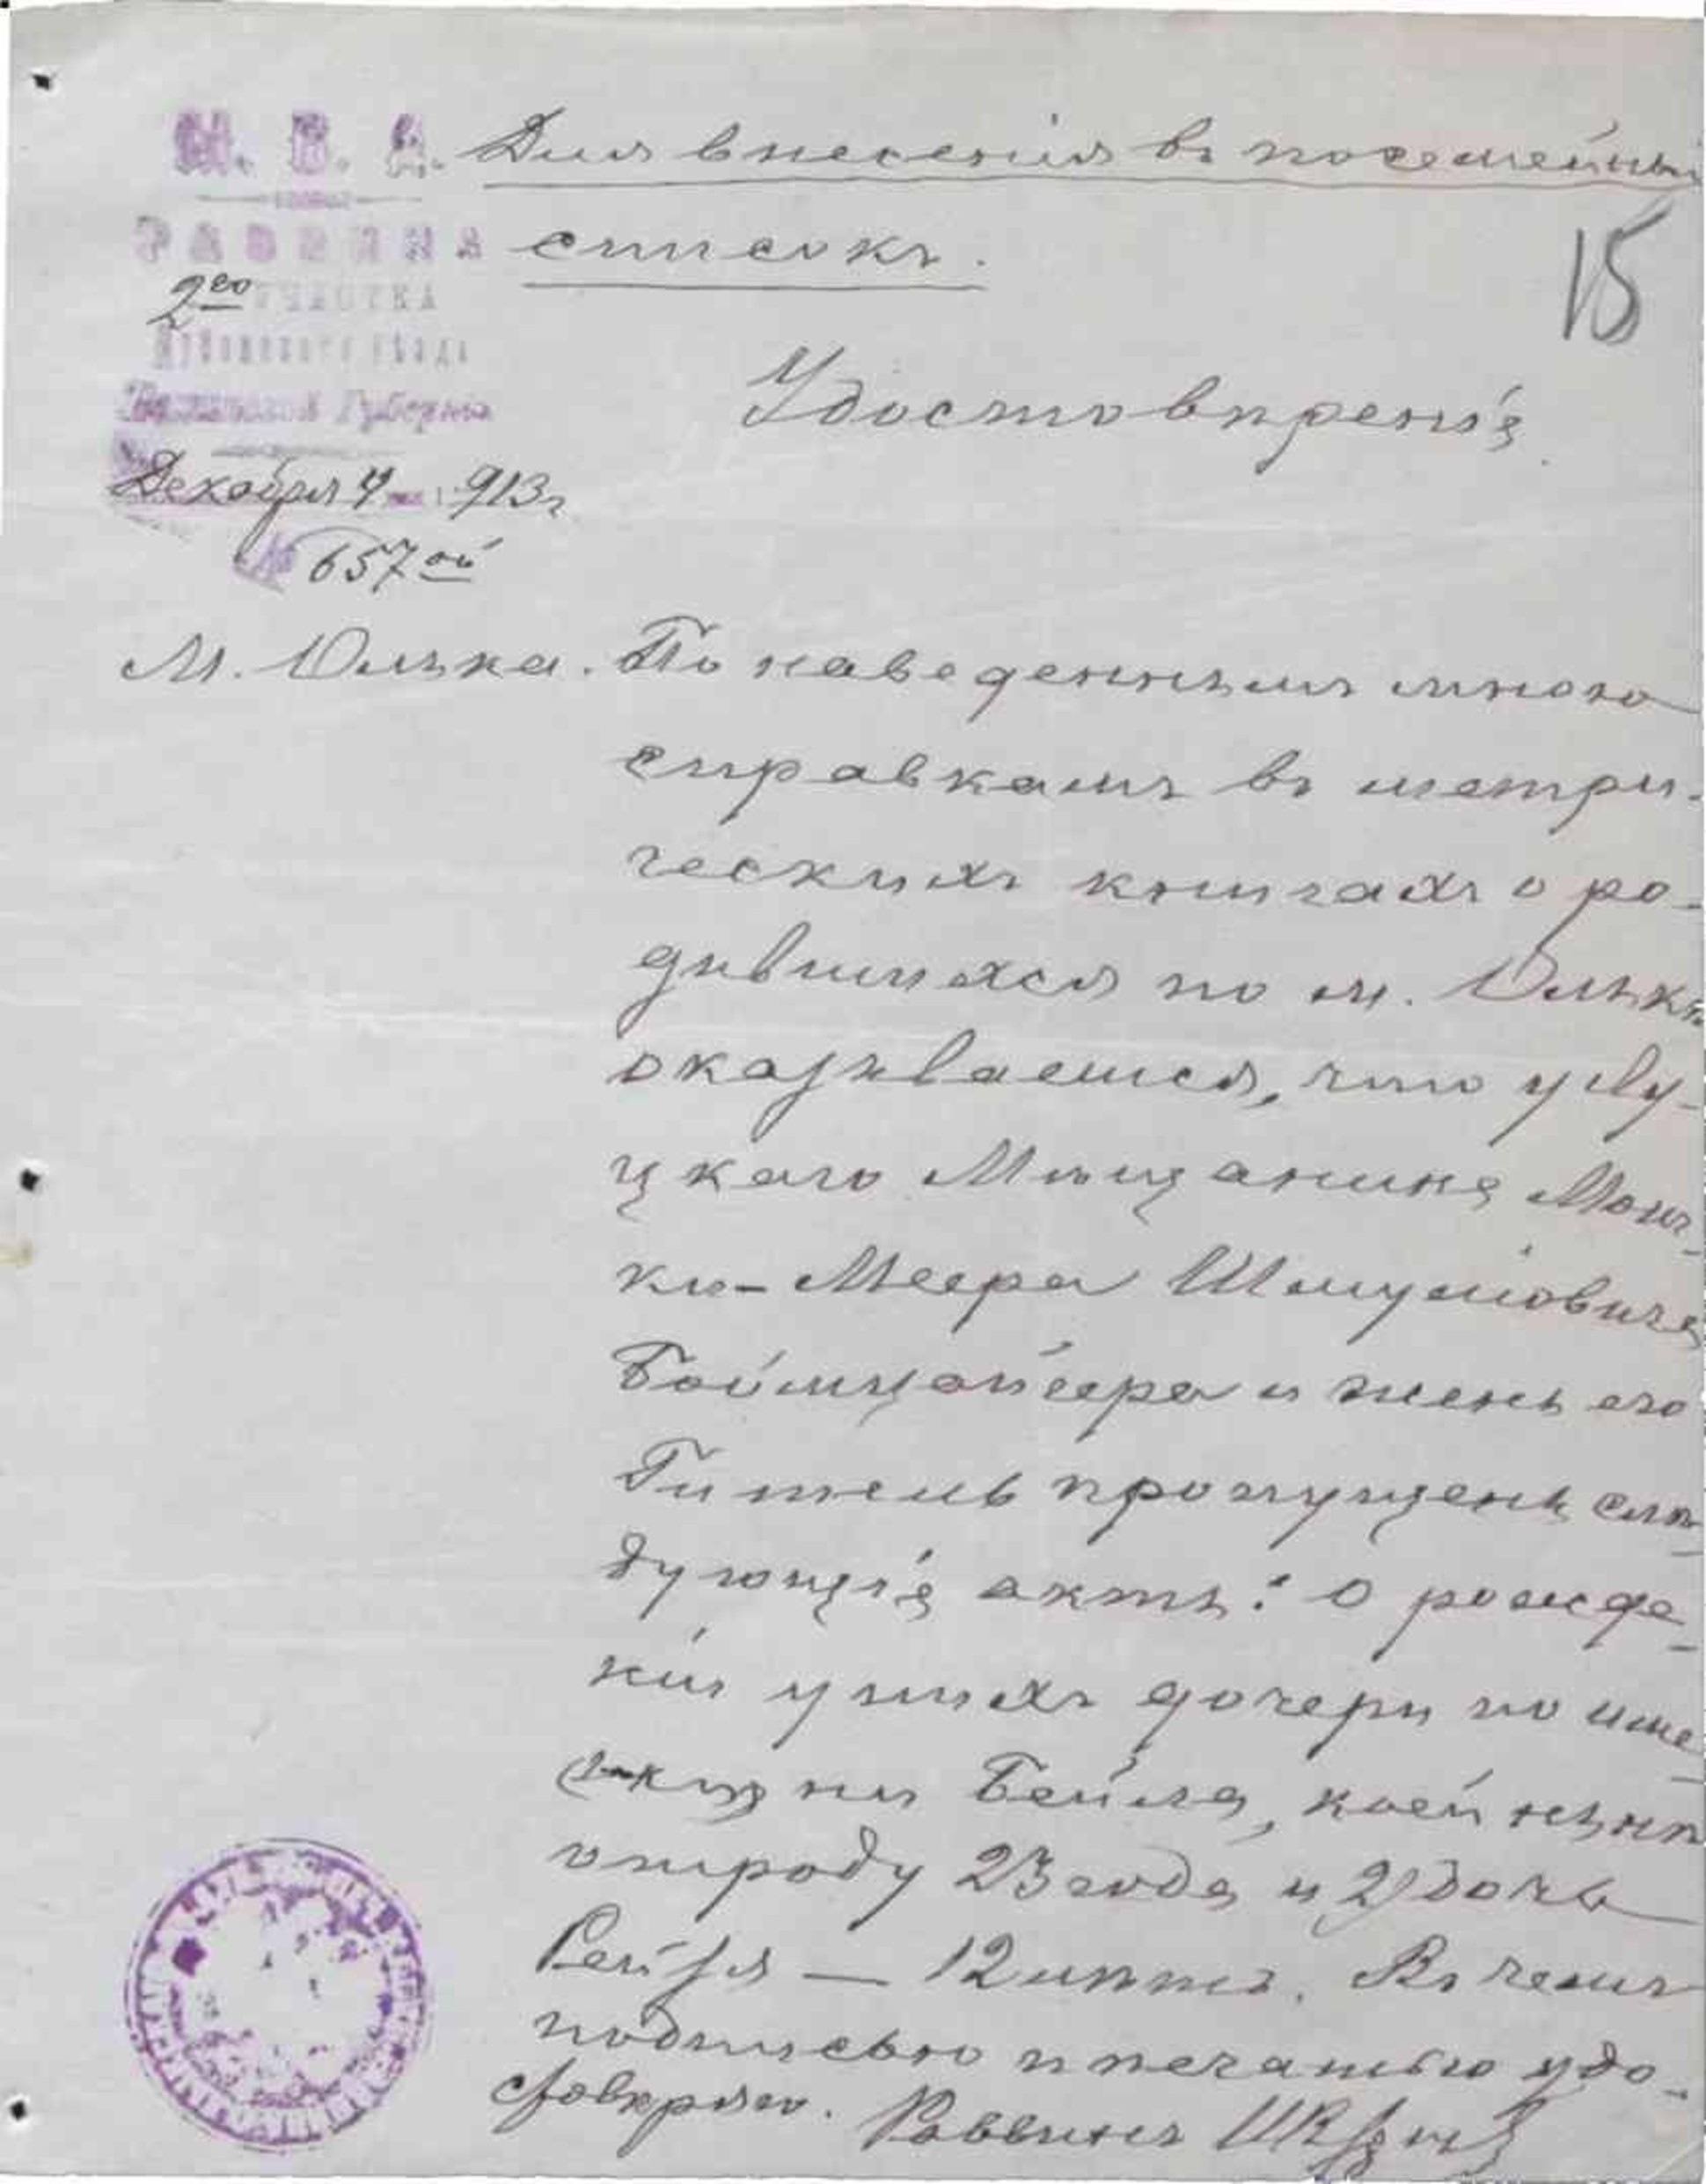 М. В. Д. Для внесенія въ посемейный
РАВВИНА списокъ.
2го УЧАСТКА
15
Дубенскаго уѣзда
Волынской Губерніи
Удостовѣреніе
Декабря 4 1913 г
№ 657ой
М. Олыка. По наведеннымъ мною
справкамъ въ метри-
ческихъ книгахъ о ро-
дившихся по м. Олыкѣ
оказывается, что у Лу-
цкаго Мѣщанина Мош-
ки-Меера Шмулiовича
Боймцайгера и жены его
Гитель пропущены слѣ-
дующіе акты: о рожде-
ніи у нихъ дочери по име-
ни Бейла, коей нынѣ
отроду 23 года и 2) дочь
Рейзя — 12 лѣтъ. Въ чемъ
подписью и печатью удо-
стовѣряю. Раввинъ